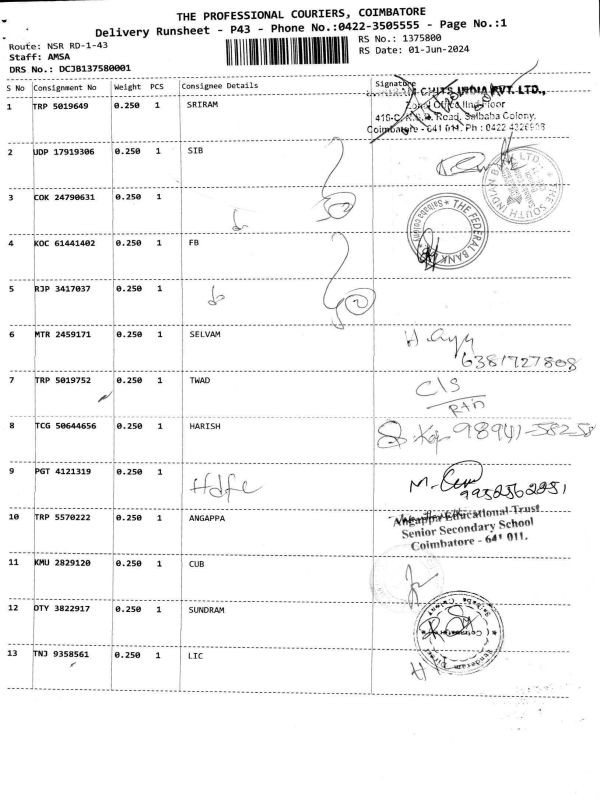 THE PROFESSIONAL COURIERS, COIMBATORE
Delivery Runsheet - P43 - Phone No.:0422-3505555 - Page No.:1
Route: NSR RD-1-43
RS No.: 1375800
Staff: AMSA
RS Date: 01-Jun-2024
DRS No.: DCJB137580001
S No Consignment No Weight PCS Consignee Details Signature
CHITS INDIA PVT. LTD.,
Zonal Office IInd Floor
1 TRP 5019649 0.250 1 SRIRAM
416-C, N.S.R. Road, Saibaba Colony,
Coimbatore - 641 011. Ph : 0422 4326908
2 UDP 17919306 0.250 1 SIB
THE SOUTH INDIAN BANK LTD.
3 COK 24790631 0.250 1 do 2
THE FEDERAL BANK
Saibaba Colony
4 KOC 61441402 0.250 1 FB
5 RJP 3417037 0.250 1 do 2
6 MTR 2459171 0.250 1 SELVAM
6381727808
7 TRP 5019752 0.250 1 TWAD
C/S
Rtn
8 TCG 50644656 0.250 1 HARISH
98941-58258
9 PGT 4121319 0.250 1 Hdfc
10 TRP 5570222 0.250 1 ANGAPPA
Angappa Educational Trust
Senior Secondary School
Coimbatore - 641 011.
11 KMU 2829120 0.250 1 CUB
12 OTY 3822917 0.250 1 SUNDRAM
13 TNJ 9358561 0.250 1 LIC